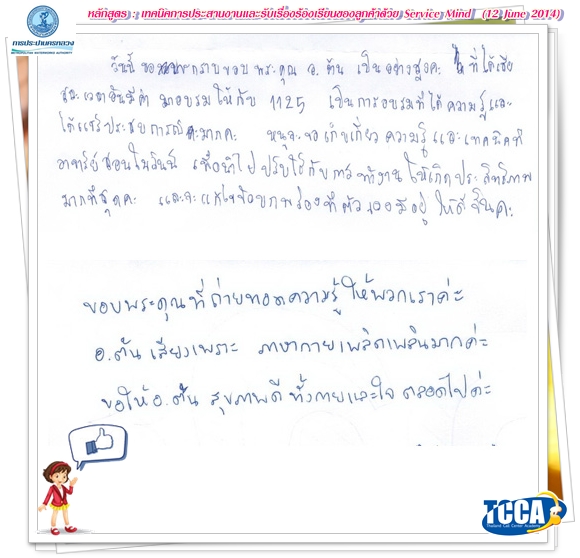 หลักสูตร : เทคนิคการประสานงานและรับเรื่องร้องเรียนของลูกค้าด้วย Service Mind (12 June 2014)
การประปานครหลวง
วันนี้ ขอ กราบขอบพระคุณ อ.ต้น เป็นอย่างสูงค่ะ ที่ได้เสีย
สละเวลาอันมีค่า มาอบรมให้กับ 1125 เป็นการอบรมที่ได้ความรู้และ
ได้แชร์ประสบการณ์ดีมากค่ะ หนูจะขอเก็บเกี่ยวความรู้และเทคนิคที่
อาจารย์สอนในวันนี้ เพื่อนำไปปรับใช้กับการทำงานให้เกิดประสิทธิภาพ
มากที่สุดค่ะ และจะแก้ไขข้อบกพร่องที่ตัวเองมีอยู่ ให้ดีขึ้นค่ะ
ขอบพระคุณที่ถ่ายทอดความรู้ให้พวกเราค่ะ
อ.ต้น เสียงเพราะ ภาษากายเพลิดเพลินมากค่ะ
ขอให้ อ.ต้น สุขภาพดี ทั้งกายและใจ ตลอดไปค่ะ
TCCA
Thailand Call Center Academy